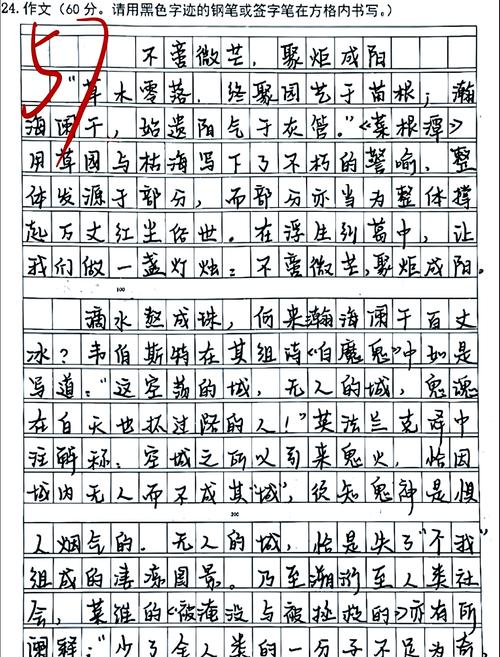 24. 作文（60 分。请用黑色字迹的钢笔或签字笔在方格内书写。）
57
不啻微芒，聚炬成阳
"草木零落，终聚园艺于苗根；瀚
海阑干，始遗阳气于灰管。"《菜根谭》
用草园与枯海写下了不朽的警喻，整
体发源于部分，而部分亦当为整体撑
起万丈红尘俗世。在浮生纠葛中，让
我们做一盏灯烛：不啻微芒，聚炬成阳。
100
滴水愁成珠，何来瀚海阑干百丈
冰？韦伯斯特在其组诗《白魔鬼》中如是
写道："这空荡的城，无人的城，鬼魂
在白天也抓过路的人！"英法兰克译中
注解称：空城之所以引来鬼火，恰因
城内无人而不成其"城"，须知鬼神是惧
200
人烟气的。无人的城，恰是失了"不我"
组成的凄凉图景。乃至溯游至人类社
会，莱维的《被淹没与被拯救的》亦有所
阐释："少了全人类的一分子不足为奇